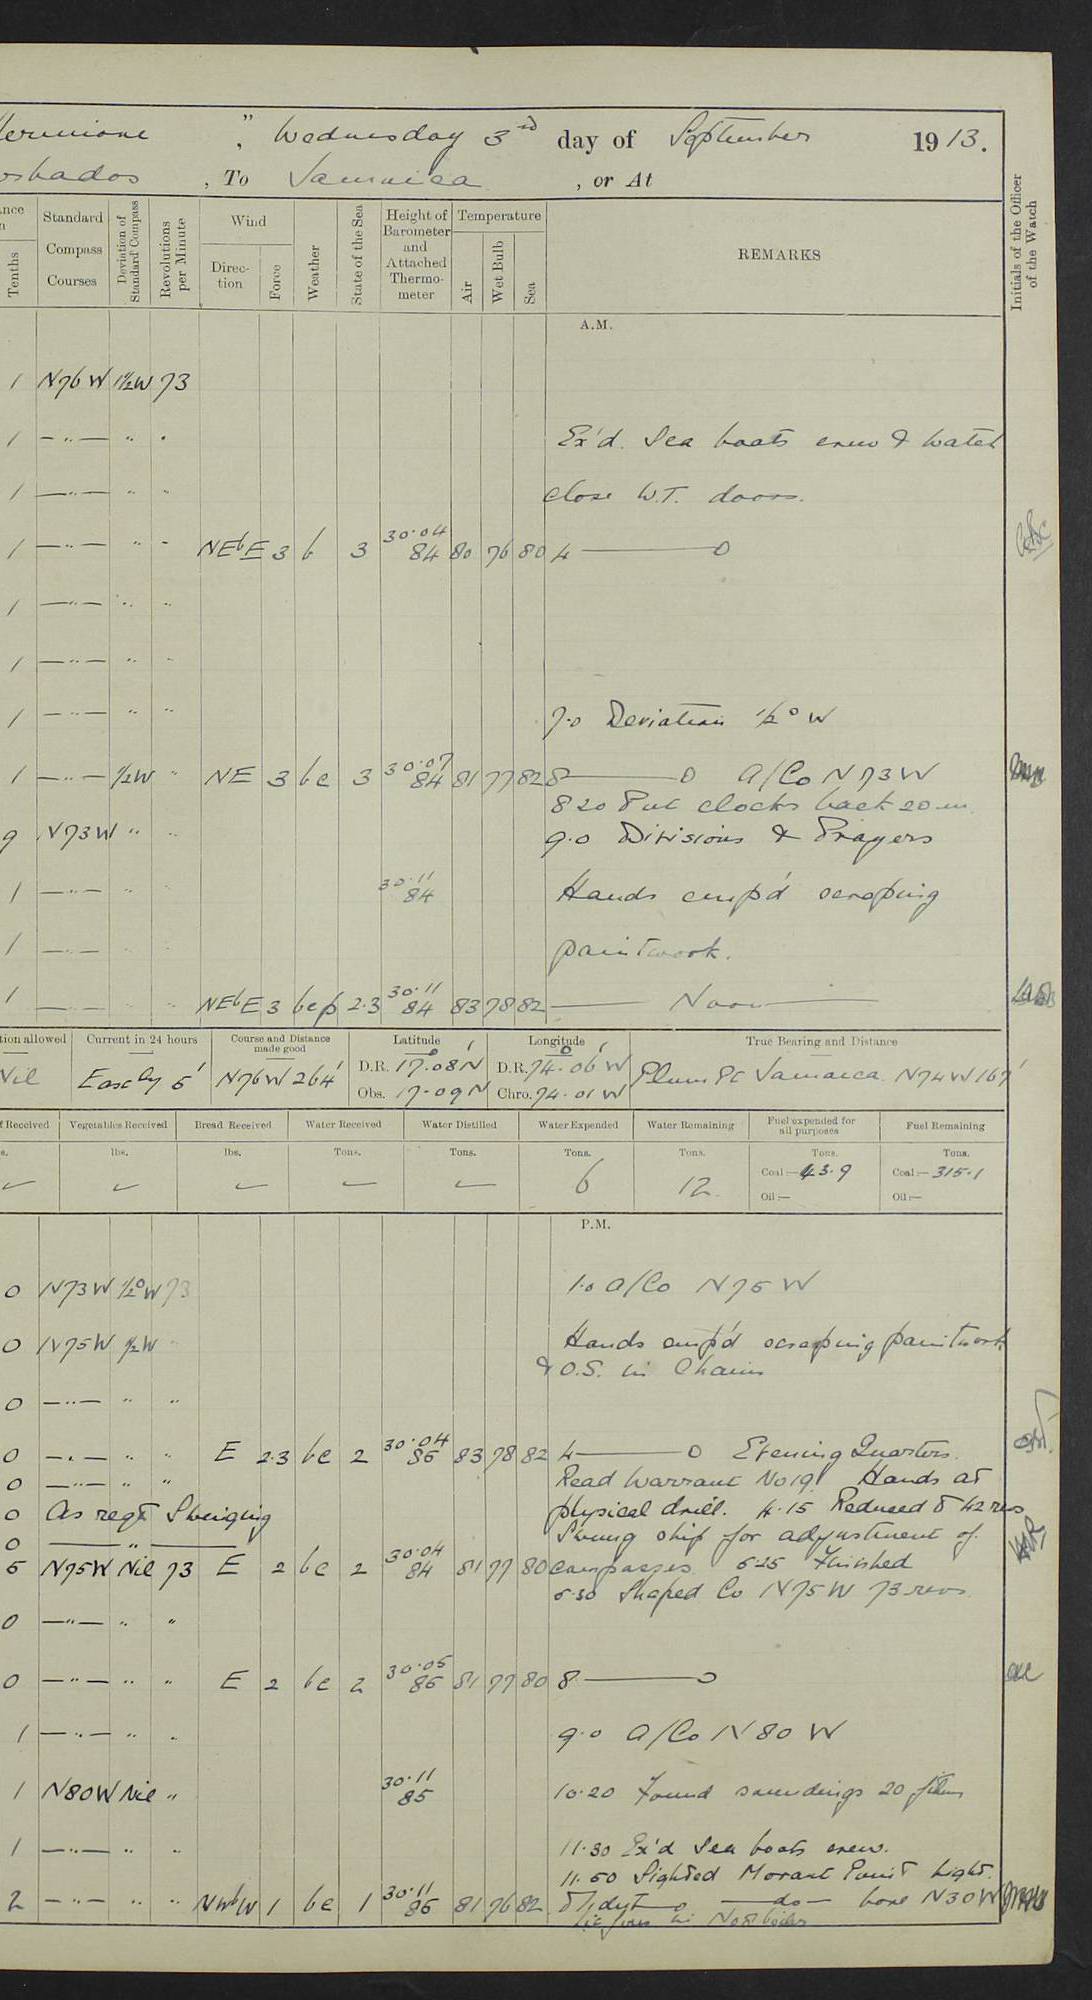 Hermione " , Wednesday 3rd day of September 1913.
Barbados , To Jamaica , or At
Tenths
Standard Compass Courses
Deviation of Standard Compass
Revolutions per Minute
Wind
Direction
Force
Weather
State of the Sea
Height of Barometer and Attached Thermometer
Temperature
Air
Wet Bulb
Sea
REMARKS
Initials of the Officer of the Watch
A.M.
1 N76W 1½W 73
1 — " — " " Ex'd. Sea boats crew & watch
1 — " — " " close W.T. doors.
1 — " — " " NEbE 3 b 3 30.04 84 80 76 80 4 ——— 0
1 — " — " "
1 — " — " "
1 — " — " " 7.0 Deviation ½° W
1 — " — ½W " NE 3 bc 3 30.07 84 81 77 82 8 ——— 0 A/Co N73W
8 20 Put clocks back 20 m.
9 N73W " " 9.0 Divisions & Prayers
1 — " — " " 30.11 84 Hands emp'd scraping
1 — " — paintwork.
1 — — NEbE 3 bcp 2.3 30.11 84 83 78 82 ——— Noon ———
tion allowed Current in 24 hours Course and Distance made good Latitude Longitude True Bearing and Distance
Nil Easely 5' N76W 264' D.R. 17°.08'N D.R. 74°.06'W Plum Pt Jamaica N74W 167'
Obs. 17-09N Chro. 74.01 W
f Received Vegetables Received Bread Received Water Received Water Distilled Water Expended Water Remaining Fuel expended for all purposes Fuel Remaining
s. lbs. lbs. Tons. Tons. Tons. Tons. Tons. Tons.
✓ ✓ ✓ ✓ ✓ 6 12 Coal:— 43.9 Coal:— 315.1
Oil:— Oil:—
P.M.
0 N73W ½°W 73 1.0 A/Co N75W
0 N75W ½W " Hands emp'd scraping paintwork
& O.S. in Chains
0 — " — " "
0 — " — " " E 2.3 bc 2 30.04 86 83 78 82 4 ——— 0 Evening Quarters.
0 — " — " " Read Warrant No 19. Hands at
0 As reqt Swinging physical drill. 4.15 Reduced to 42 revs
0 ——— " ——— Swung ship for adjustment of
5 N75W Nil 73 E 2 bc 2 30.04 84 81 77 80 compasses 5.25 Finished
5.30 Shaped Co N75W 73 revs.
0 — " — " "
0 — " — " " E 2 bc 2 30.05 86 81 77 80 8 ——— 0
1 — " — " " 9.0 A/Co N80W
1 N80W Nil " 30.11 85 10.20 Found soundings 20 fthms
1 — " — " " 11.30 Ex'd Sea boats crew.
11.50 Sighted Morant Point Light.
2 — " — " " NWbW 1 bc 1 30.11 86 81 76 82 Midgt ——— 0 — do — bore N30W
Lit fires in No 8 boiler